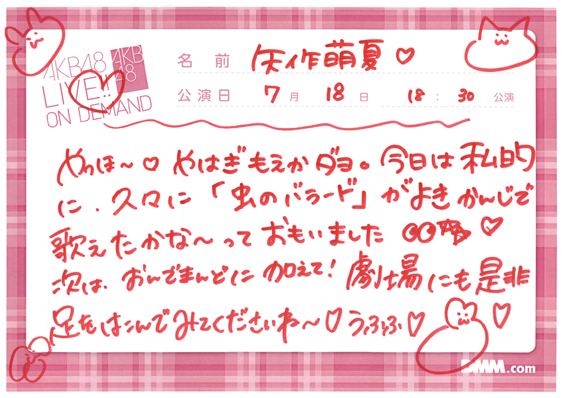 AKB48
LIVE!!
ON DEMAND
AKB
48
名前 矢作萌夏♡
公演日 7月 18日 18:30 公演
やっほ〜♡ やはぎもえかダヨ。今日は私的
に、久々に「虫のバラード」がよきかんじで
歌えたかな〜っておもいました ♡
次は、おんでまんどに加えて!劇場にも是非
足をはこんでみてくださいね〜♡うふふ♡ ♡
DMM.com